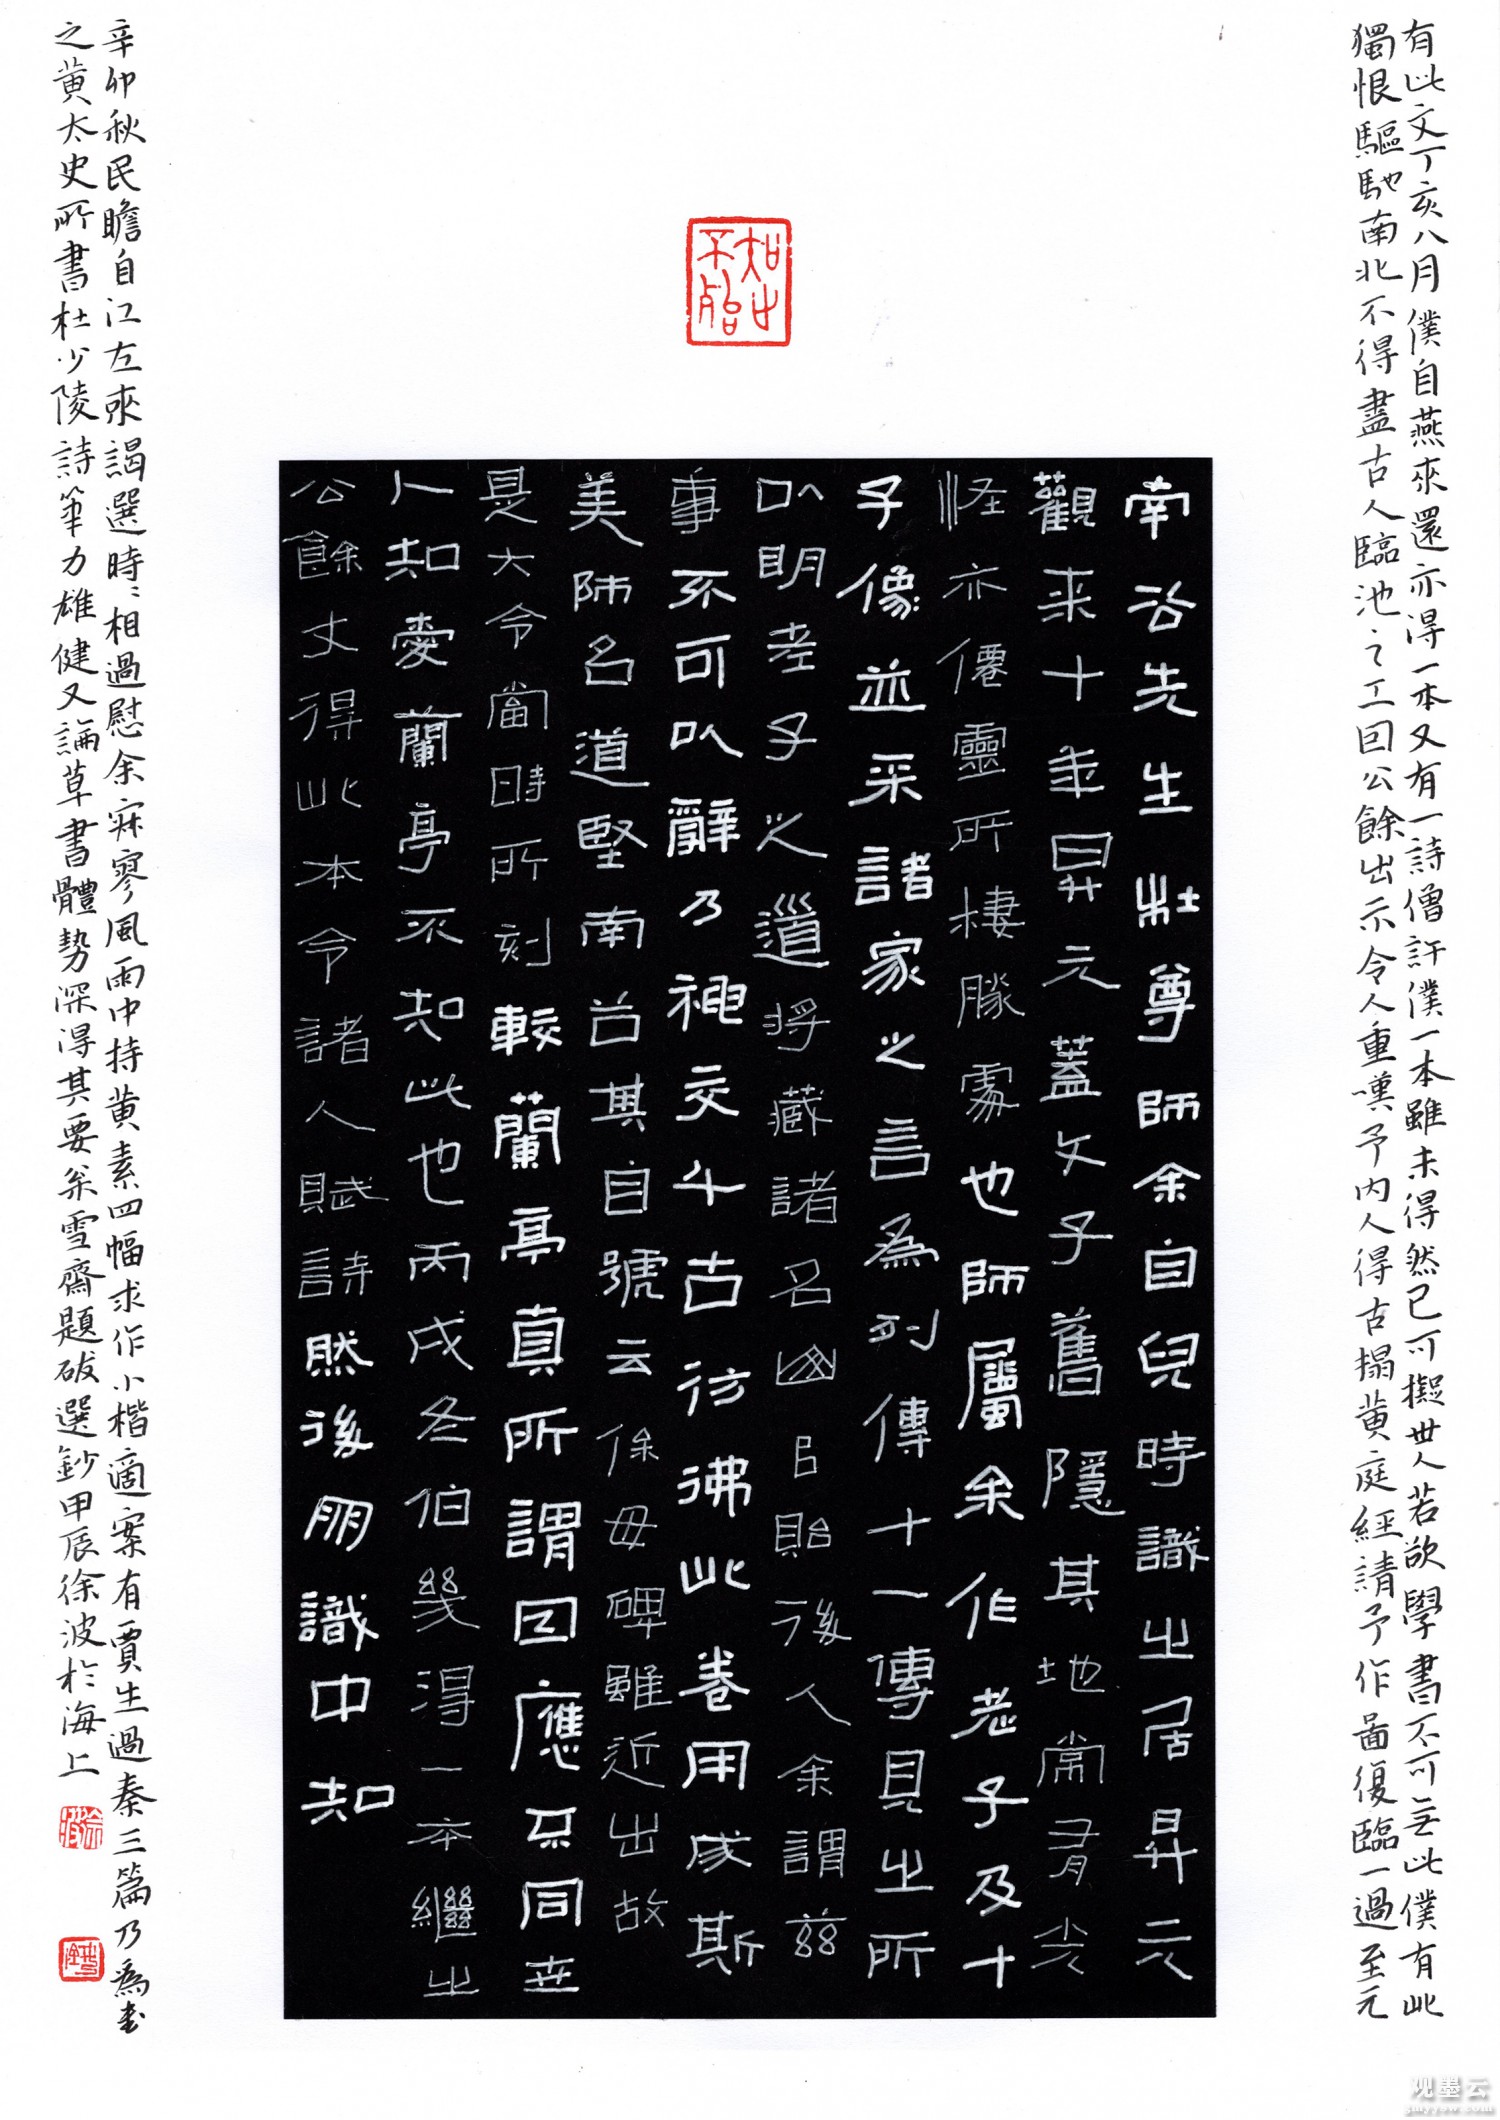 有此文丁亥八月僕自燕來還亦得一本又有一詩僧許僕一本雖未得然已可擬世人若欲學書不可無此僕有此
獨恨驅馳南北不得盡古人臨池之工因公餘出示令人重嘆予内人得古搨黄庭經請予作圖復臨一過至元
知止不殆
南谷先生杜尊師余自兒時識之居昇元
觀来十年昇元蓋文子舊隱其地常有光
怪亦僊靈所棲勝處也師屬余作老子及十
子像並采諸家之言為列傳十一傳見之所
以明老子之道將藏諸名山以貽後人余謂兹
事不可以辭乃神交千古彷彿此卷用成斯
美師名道堅南谷其自號云 保母碑雖近出故
是大令當時所刻較蘭亭真所謂因應不同世
人知愛蘭亭不知此也丙戌冬伯幾得一本繼之
公餘丈得此本令諸人賦詩然後朋識中知
辛卯秋民瞻自江左来謁選時時相過慰余寂寥風雨中持黄素四幅求作小楷適案有賈生過秦三篇乃為書
之黄太史所書杜少陵詩筆力雄健又論草書體勢深得其要矣雪齋題跋選鈔甲辰徐波於海上
徐波
观墨云
gmyyow.com